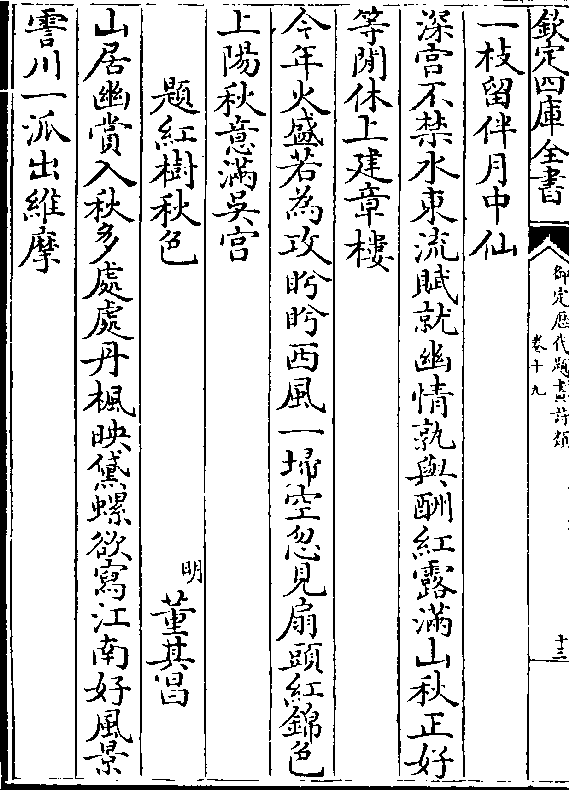 欽定四庫全書
御定歷代題畫詩類
卷十九
十三
一枝留伴月中仙
深宫不禁水東流賦就幽情孰與酬紅露滿山秋正好
等閒休上建章樓
今年火盛若為攻盻盻西風一埽空忽見扇頭紅錦色
上陽秋意滿吳宫
題紅樹秋色
明 董其昌
山居幽賞入秋多處處丹楓映黛螺欲寫江南好風景
霅川一派出維摩